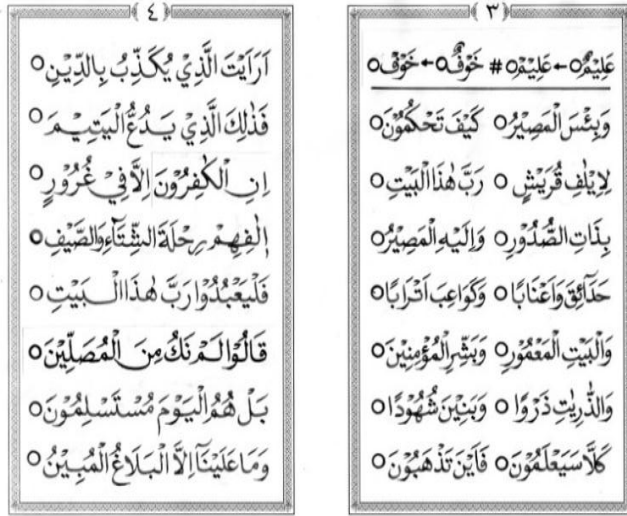 ٣
عَلِيْمٌ○←عَلِيْمْ○ # خَوْفٌ○←خَوْفْ○
وَبِئْسَ الْمَصِيْرُ○ كَيْفَ تَحْكُمُوْنَ○
لِاِيْلٰفِ قُرَيْشٍ○ رَبَّ هٰذَا الْبَيْتِ○
بِذَاتِ الصُّدُوْرِ○ وَاِلَيْهِ الْمَصِيْرُ○
حَدَآئِقَ وَاَعْنَابًا○ وَكَوَاعِبَ اَتْرَابًا○
وَالْبَيْتِ الْمَعْمُوْرِ○ وَبَشِّرِ الْمُؤْمِنِيْنَ○
وَالذّٰرِيٰتِ ذَرْوًا○ وَبَنِيْنَ شُهُوْدًا○
كَلَّا سَيَعْلَمُوْنَ○ فَاَيْنَ تَذْهَبُوْنَ○
٤
اَرَاَيْتَ الَّذِيْ يُكَذِّبُ بِالدِّيْنِ○
فَذٰلِكَ الَّذِيْ يَدُعُّ الْيَتِيْمَ○
اِنِ الْكٰفِرُوْنَ اِلَّا فِيْ غُرُوْرٍ○
اٖلٰفِهِمْ رِحْلَةَ الشِّتَآءِ وَالصَّيْفِ○
فَلْيَعْبُدُوْا رَبَّ هٰذَا الْبَيْتِ○
قَالُوْا لَمْ نَكُ مِنَ الْمُصَلِّيْنَ○
بَلْ هُمُ الْيَوْمَ مُسْتَسْلِمُوْنَ○
وَمَا عَلَيْنَآ اِلَّا الْبَلَاغُ الْمُبِيْنُ○